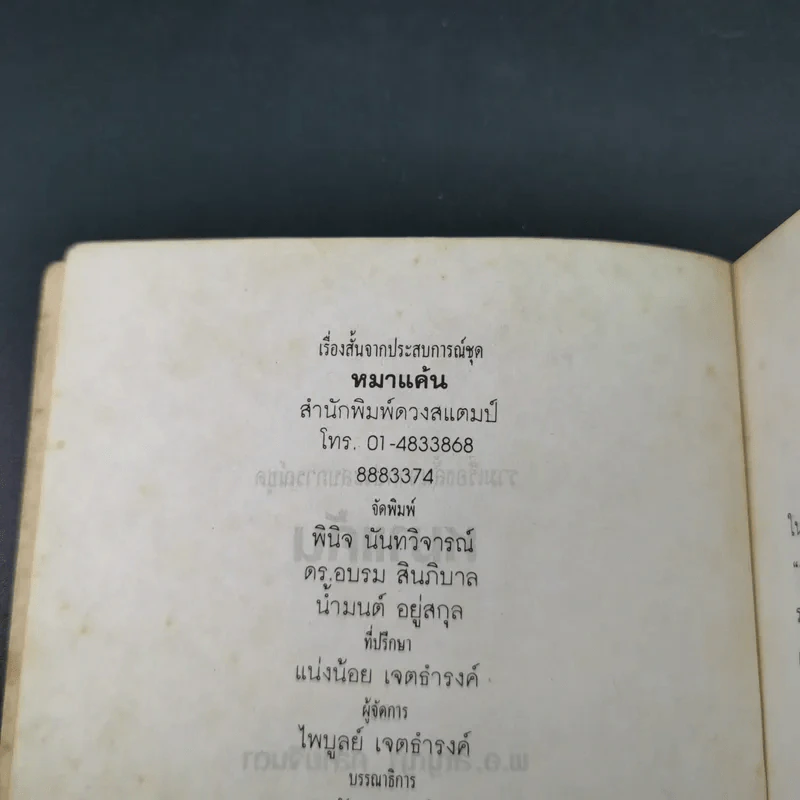 เรื่องสั้นจากประสบการณ์ชุด
หมาแค้น
สำนักพิมพ์ดวงสแตมป์
โทร. 01-4833868
8883374
จัดพิมพ์
พินิจ นันทวิจารณ์
ดร.อบรม สินภิบาล
น้ำมนต์ อยู่สกุล
ที่ปรึกษา
แน่งน้อย เจตธำรงค์
ผู้จัดการ
ไพบูลย์ เจตธำรงค์
บรรณาธิการ